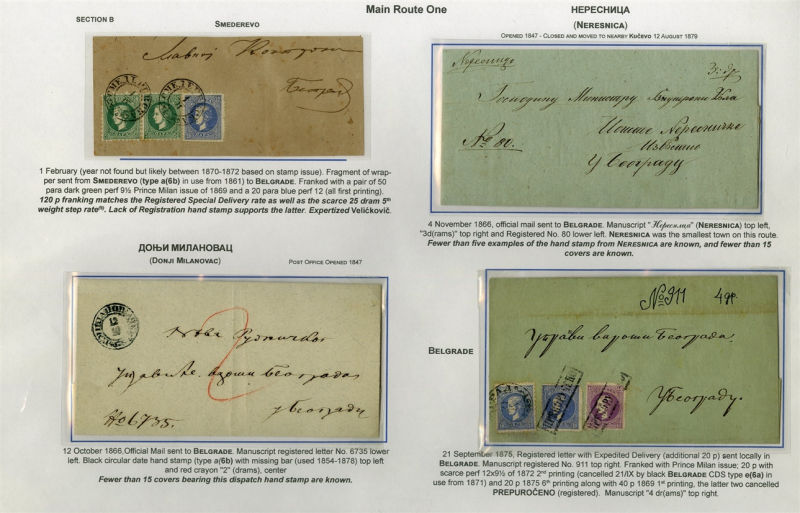 Main Route One
SECTION B
SMEDEREVO
1 February (year not found but likely between 1870-1872 based on stamp issue). Fragment of wrap-
per sent from SMEDEREVO (type a(6b) in use from 1861) to BELGRADE. Franked with a pair of 50
para dark green perf 9½ Prince Milan issue of 1869 and a 20 para blue perf 12 (all first printing).
120 p franking matches the Registered Special Delivery rate as well as the scarce 25 dram 5th
weight step rate⁽⁵⁾. Lack of Registration hand stamp supports the latter. Expertized Veličkovič.
НЕРЕСНИЦА
(NERESNICA)
OPENED 1847 - CLOSED AND MOVED TO NEARBY KUČEVO 12 AUGUST 1879
Нересница
3 др
Господину Министру Внутрени Дела
No 80.
у Београду
4 November 1866, official mail sent to BELGRADE. Manuscript "Нересница" (NERESNICA) top left,
"3d(rams)" top right and Registered No. 80 lower left. NERESNICA was the smallest town on this route.
Fewer than five examples of the hand stamp from NERESNICA are known, and fewer than 15
covers are known.
ДОЊИ МИЛАНОВАЦ
(DONJI MILANOVAC)
POST OFFICE OPENED 1847
12
10
2
вароши Београда
у Београду
No 6735.
12 October 1866,Official Mail sent to BELGRADE. Manuscript registered letter No. 6735 lower
left. Black circular date hand stamp (type a/6b) with missing bar (used 1854-1878) top left
and red crayon "2" (drams), center
Fewer than 15 covers bearing this dispatch hand stamp are known.
BELGRADE
No 911
4 др.
Управи вароши Београда.
у Београду.
21 September 1875, Registered letter with Expedited Delivery (additional 20 p) sent locally in
BELGRADE. Manuscript registered No. 911 top right. Franked with Prince Milan issue; 20 p with
scarce perf 12x9½ of 1872 2nd printing (cancelled 21/IX by black BELGRADE CDS type e(6a) in
use from 1871) and 20 p 1875 6th printing along with 40 p 1869 1st printing, the latter two cancelled
PREPUROČENO (registered). Manuscript "4 dr(ams)" top right.